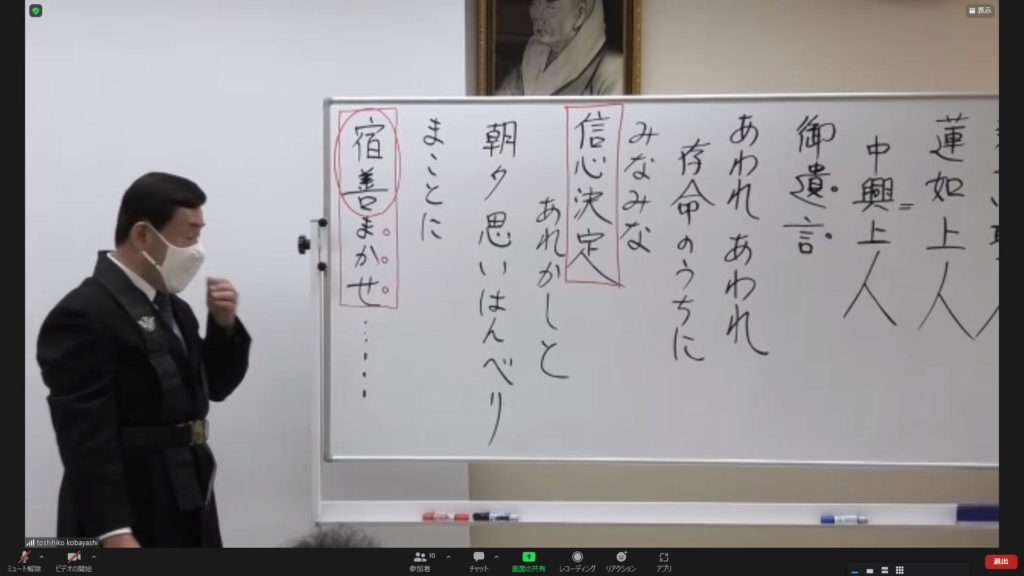 表示
蓮如上人
中興上人
御遺言
あわれあわれ
存命のうちに
みなみな
信心決定
あれかしと
朝夕思いはんべり
まことに
宿善まかせ・・・・・
toshihiko kobayashi
ミュート解除
ビデオの開始
参加者
10
チャット
画面の共有
レコーディング
リアクション
アプリ
退出